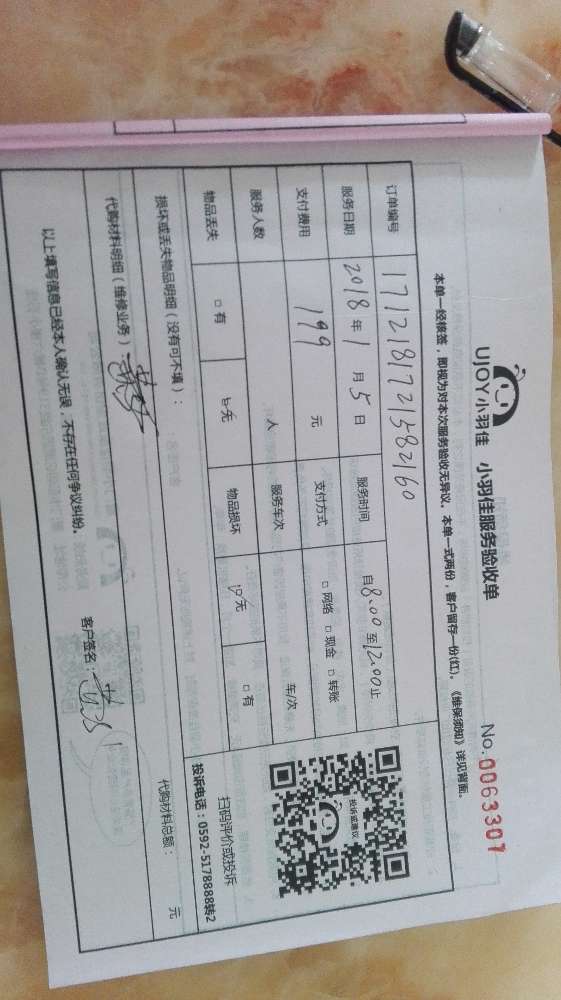 UJOY小羽佳 小羽佳服务验收单 No.0063307
本单一经核签，即视为对本次服务验收无异议。本单一式两份，客户留存一份(红)。《维保须知》详见背面。
订单编号 1712181721582160
服务日期 2018年1月5日 服务时间 自8:00至12:00止
支付费用 199元 支付方式 □网络 □现金 □转账
服务人数 人 服务车次 车/次
物品丢失 □有 □无 物品损坏 □无 □有
投诉或建议
扫码评价或投诉
投诉电话：0592-5178888转2
损坏或丢失物品明细（没有可不填）：
代购材料明细（维修业务）： 代购材料总额： 元
以上填写信息已经本人确认无误，不存在任何争议纠纷。 客户签名：